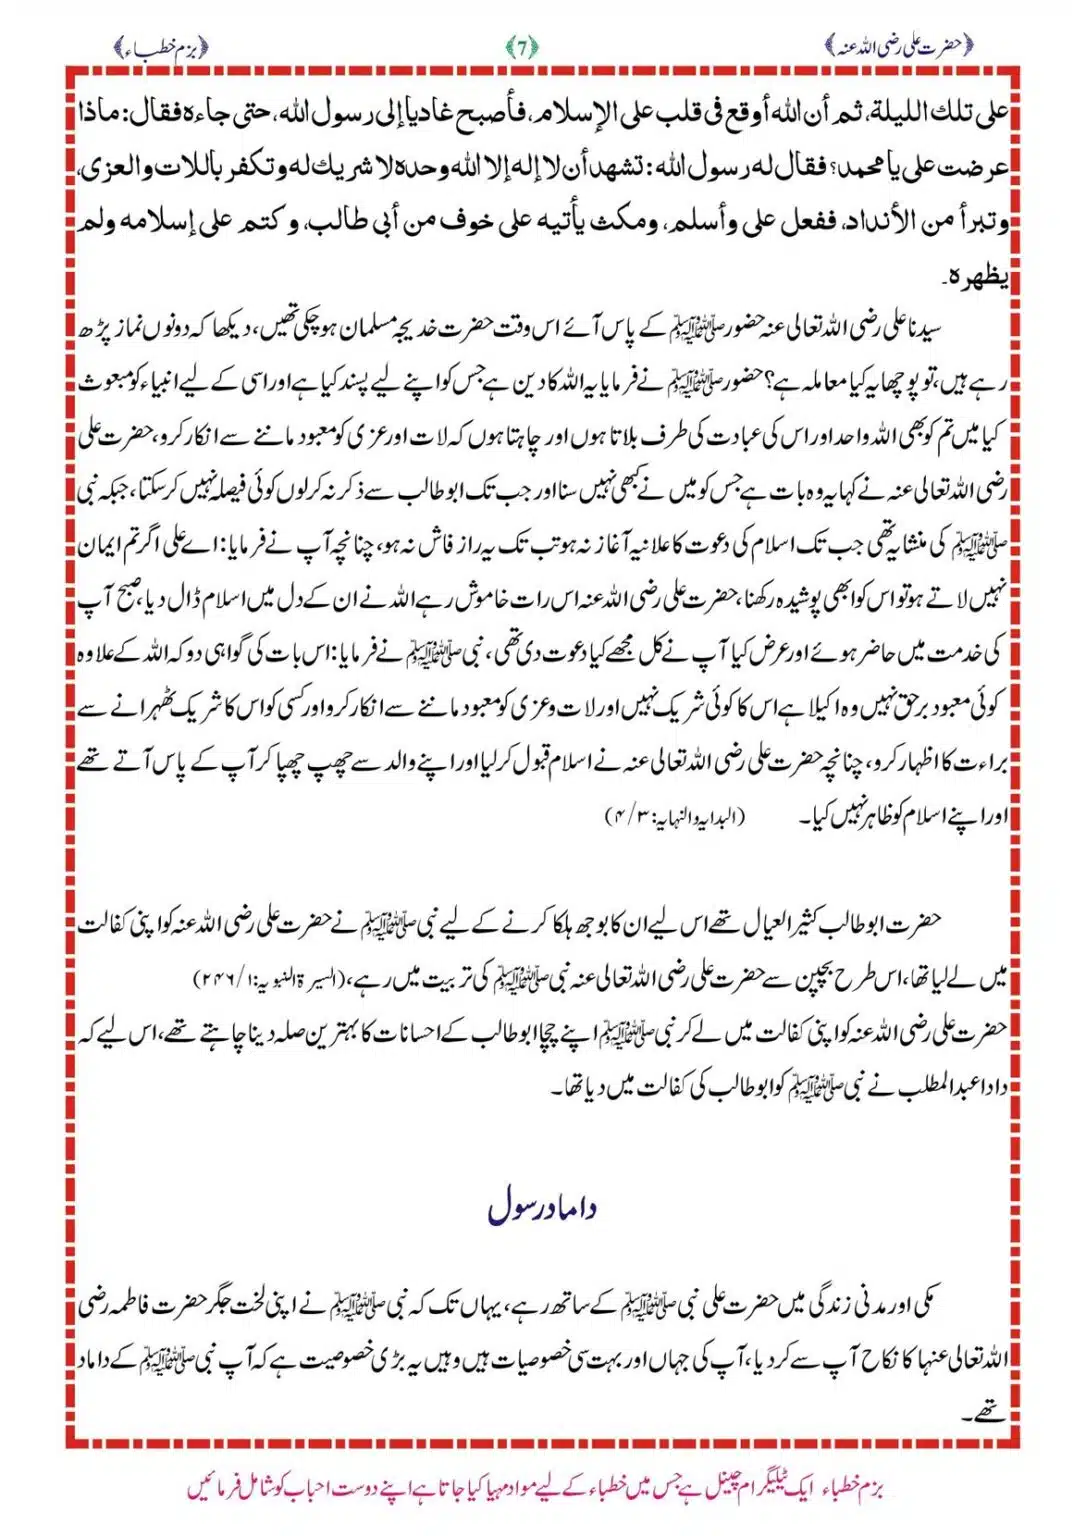 ﴿حضرت علی رضی اللہ عنہ﴾ ﴿7﴾ ﴿بزم خطباء﴾
علی تلك الليلة، ثم أن الله أوقع فی قلب علی الإسلام، فأصبح غادیا إلی رسول الله، حتی جاءه فقال: ماذا
عرضت علی یا محمد؟ فقال له رسول الله: تشهد أن لا إله إلا الله وحده لا شریك له وتکفر باللات والعزی،
وتبرأ من الأنداد، ففعل علی وأسلم، ومکث یأتیه علی خوف من أبی طالب، وکتم علی إسلامه ولم
یظهره۔
سیدنا علی رضی اللہ تعالی عنہ حضور ﷺ کے پاس آئے اس وقت حضرت خدیجہ مسلمان ہوچکی تھیں، دیکھا کہ دونوں نماز پڑھ
رہے ہیں، تو پوچھا یہ کیا معاملہ ہے؟ حضور ﷺ نے فرمایا یہ اللہ کا دین ہے جس کو اپنے لیے پسند کیا ہے اور اسی کے لیے انبیاء کو مبعوث
کیا میں تم کو بھی اللہ واحد اور اس کی عبادت کی طرف بلاتا ہوں اور چاہتا ہوں کہ لات اور عزی کو معبود ماننے سے انکار کرو، حضرت علی
رضی اللہ تعالی عنہ نے کہا یہ وہ بات ہے جس کو میں نے کبھی نہیں سنا اور جب تک ابو طالب سے ذکر نہ کرلوں کوئی فیصلہ نہیں کرسکتا، جبکہ نبی
ﷺ کی منشا یہ تھی جب تک اسلام کی دعوت کا علانیہ آغاز نہ ہو تب تک یہ راز فاش نہ ہو، چنانچہ آپ نے فرمایا: اے علی اگر تم ایمان
نہیں لاتے ہو تو اس کو ابھی پوشیدہ رکھنا، حضرت علی رضی اللہ عنہ اس رات خاموش رہے اللہ نے ان کے دل میں اسلام ڈال دیا، صبح آپ
کی خدمت میں حاضر ہوئے اور عرض کیا آپ نے کل مجھے کیا دعوت دی تھی، نبی ﷺ نے فرمایا: اس بات کی گواہی دو کہ اللہ کے علاوہ
کوئی معبود برحق نہیں وہ اکیلا ہے اس کا کوئی شریک نہیں اور لات و عزی کو معبود ماننے سے انکار کرو اور کسی کو اس کا شریک ٹھہرانے سے
براءت کا اظہار کرو، چنانچہ حضرت علی رضی اللہ تعالی عنہ نے اسلام قبول کرلیا اور اپنے والد سے چھپ چھپا کر آپ کے پاس آتے تھے
اور اپنے اسلام کو ظاہر نہیں کیا۔ (البدایہ والنہایہ: ۳/۴)
حضرت ابو طالب کثیر العیال تھے اس لیے ان کا بوجھ ہلکا کرنے کے لیے نبی ﷺ نے حضرت علی رضی اللہ عنہ کو اپنی کفالت
میں لے لیا تھا، اس طرح بچپن سے حضرت علی رضی اللہ تعالی عنہ نبی ﷺ کی تربیت میں رہے، (السیرۃ النبویہ: ۱/ ۲۴۶)
حضرت علی رضی اللہ عنہ کو اپنی کفالت میں لے کر نبی ﷺ اپنے چچا ابو طالب کے احسانات کا بہترین صلہ دینا چاہتے تھے، اس لیے کہ
دادا عبد المطلب نے نبی ﷺ کو ابو طالب کی کفالت میں دیا تھا۔
داماد رسول
مکی اور مدنی زندگی میں حضرت علی نبی ﷺ کے ساتھ رہے، یہاں تک کہ نبی ﷺ نے اپنی لخت جگر حضرت فاطمہ رضی
اللہ تعالی عنہا کا نکاح آپ سے کر دیا، آپ کی جہاں اور بہت سی خصوصیات ہیں وہیں یہ بڑی خصوصیت ہے کہ آپ نبی ﷺ کے داماد
تھے۔
بزم خطباء ایک ٹیلیگرام چینل ہے جس میں خطباء کے لیے مواد مہیا کیا جاتا ہے اپنے دوست احباب کو شامل فرمائیں